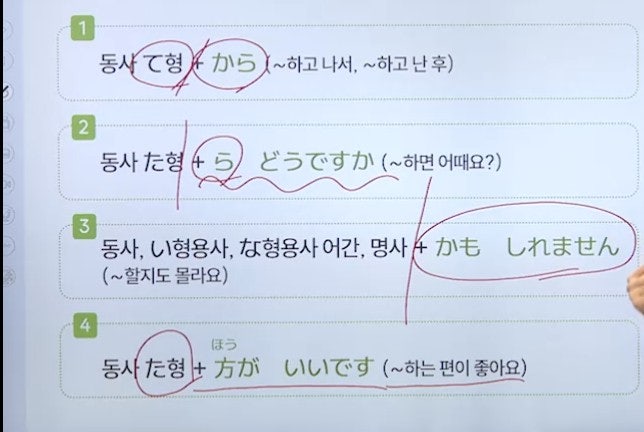 1
동사 て형 + から (~하고 나서, ~하고 난 후)
2
동사 た형 + ら どうですか (~하면 어때요?)
3
동사, い형용사, な형용사 어간, 명사 + かも しれません
(~할지도 몰라요)
4
ほう
동사 た형 + 方が いいです (~하는 편이 좋아요)